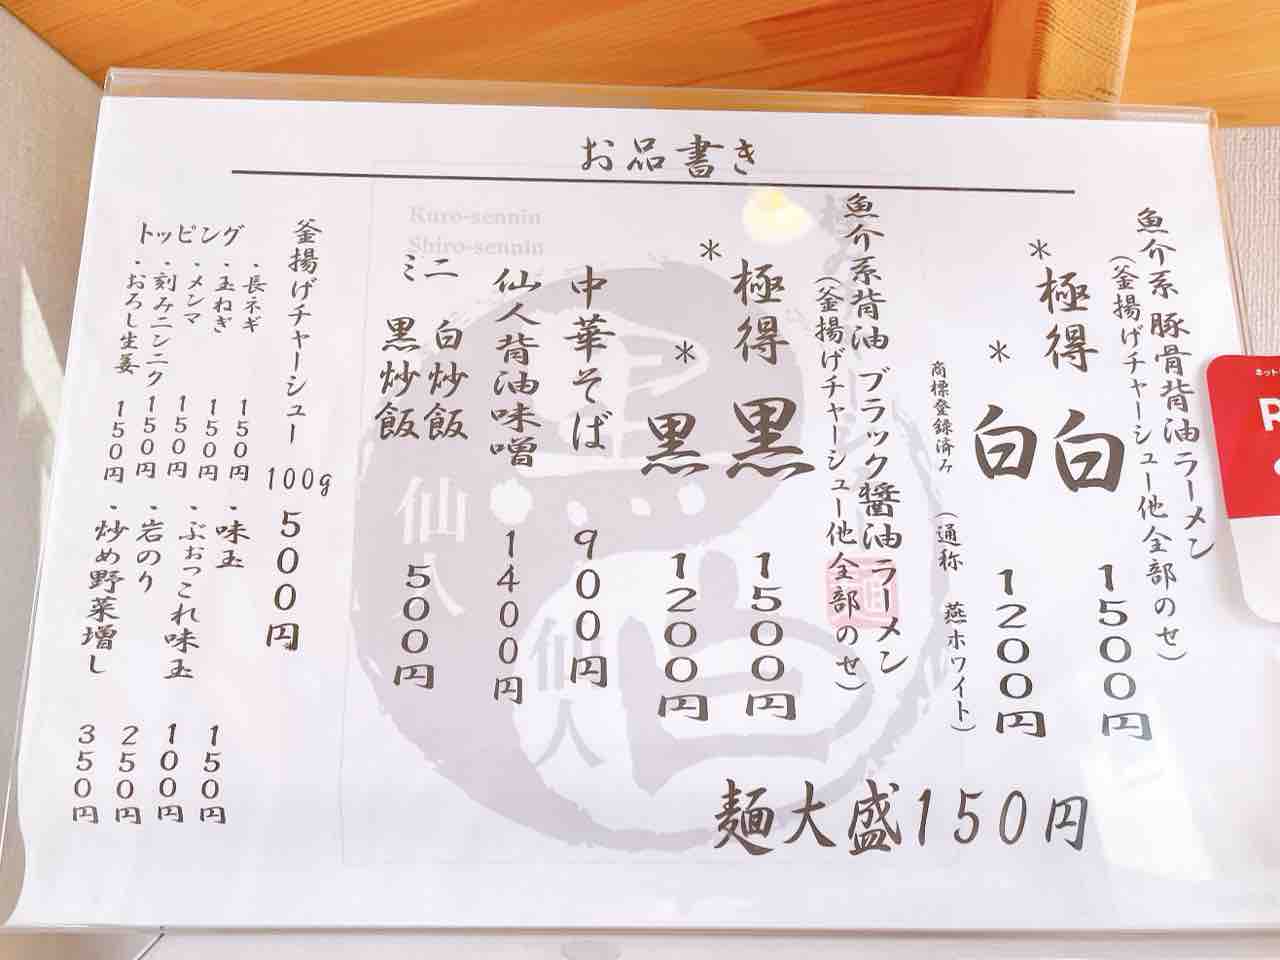 お品書き
魚介系豚骨背油ラーメン
(釜揚げチャーシュー他全部のせ)
*極得 白 1500円
*白 1200円
商標登録済み (通称 燕ホワイト)
魚介系背油 ブラック醤油 ラーメン
(釜揚げチャーシュー他全部のせ)
*極得 黒 1500円
*黒 1200円
中華そば 900円
仙人背油味噌 1400円
ミニ 白炒飯
黒炒飯 500円
釜揚げチャーシュー 100g 500円
トッピング
・長ネギ 150円
・玉ねぎ 150円
・メンマ 150円
・刻みニンニク 150円
・おろし生姜 150円
・味玉 150円
・ぶおっこれ味玉 100円
・岩のり 250円
・炒め野菜増し 350円
麺大盛150円
Kuro-sennin
Shiro-sennin
黒仙人
白仙人